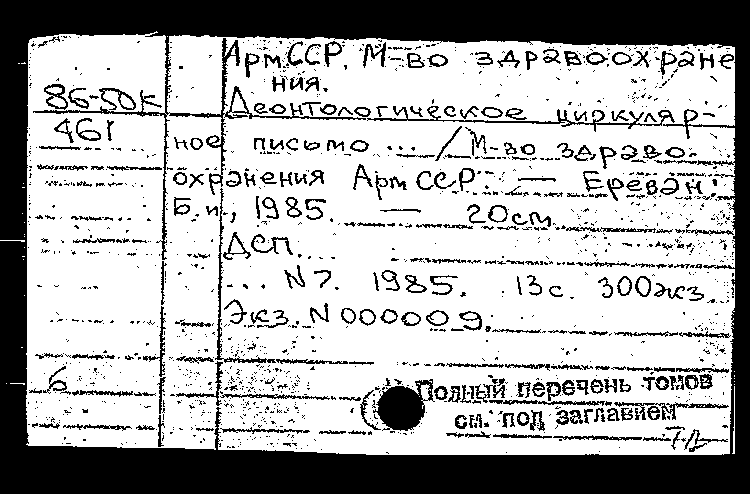 Арм.ССР. М-во здравоохране
ния.
86-50к
Деонтологическое циркуляр-
461
ное письмо ... / М-во здраво-
охранения Арм ССР. — Ереван:
Б.и., 1985. — 20см
ДСП.
... N7. 1985. 13с. 300экз.
Экз. N 000009.
6
Полный перечень томов
см. под заглавием